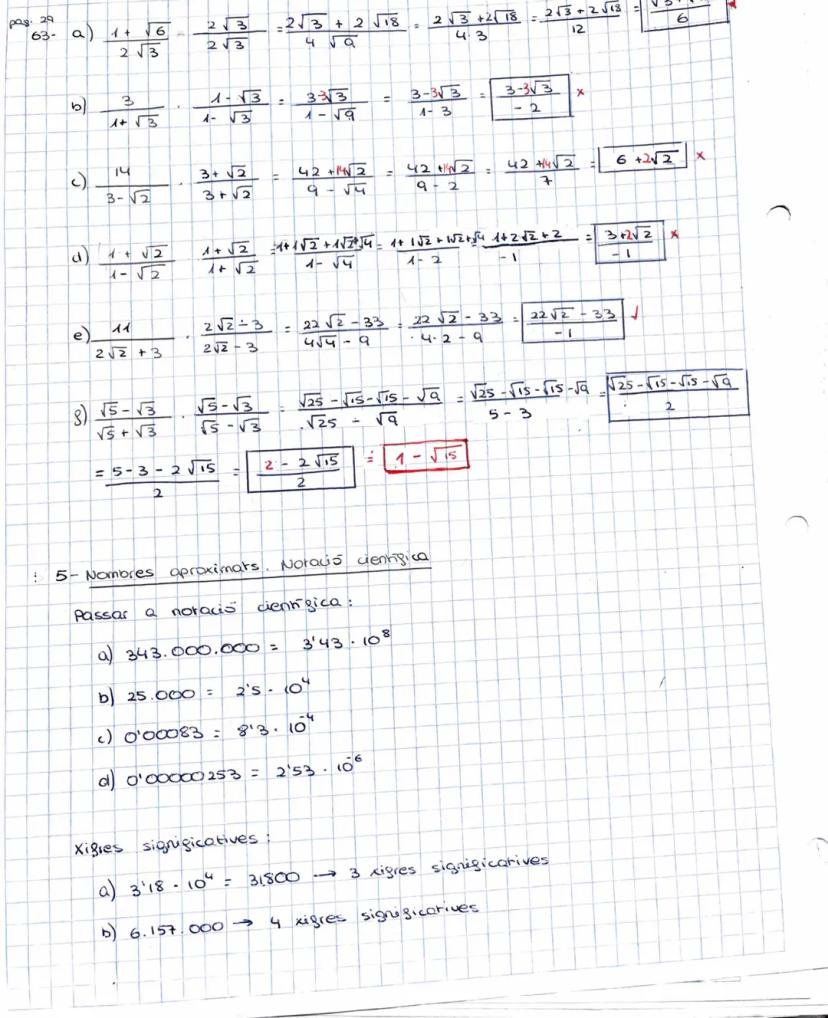 pag. 29
63- a) (1 + √6)/(2√3) · (2√3)/(2√3) = (2√3 + 2√18)/(4√9) = (2√3 + 2√18)/(4·3) = (2√3 + 2√18)/12 =
b) 3/(1+√3) · (1-√3)/(1-√3) = (3-3√3)/(1-√9) = (3-3√3)/(1-3) = (3-3√3)/(-2) ×
c) 14/(3-√2) · (3+√2)/(3+√2) = (42+14√2)/(9-√4) = (42+14√2)/(9-2) = (42+14√2)/7 = 6+2√2 ×
d) (1+√2)/(1-√2) · (1+√2)/(1+√2) = (1+1√2+1√2+√4)/(1-√4) = (1+1√2+1√2+√4)/(1-2) = (1+2√2+2)/(-1) = (3+2√2)/(-1) ×
e) 11/(2√2+3) · (2√2-3)/(2√2-3) = (22√2-33)/(4√4-9) = (22√2-33)/(4·2-9) = (22√2-33)/(-1) ✓
g) (√5-√3)/(√5+√3) · (√5-√3)/(√5-√3) = (√25-√15-√15-√9)/(√25-√9) = (√25-√15-√15-√9)/(5-3) = (√25-√15-√15-√9)/2
= (5-3-2√15)/2 = (2-2√15)/2 = 1-√15
5- Nombres aproximats. Notació científica
Passar a notació científica:
a) 343.000.000 = 3'43 · 10⁸
b) 25.000 = 2'5 · 10⁴
c) 0'00083 = 8'3 · 10⁻⁴
d) 0'00000253 = 2'53 · 10⁻⁶
Xifres significatives:
a) 3'18 · 10⁴ = 31.800 → 3 xifres significatives
b) 6.157.000 → 4 xifres significatives